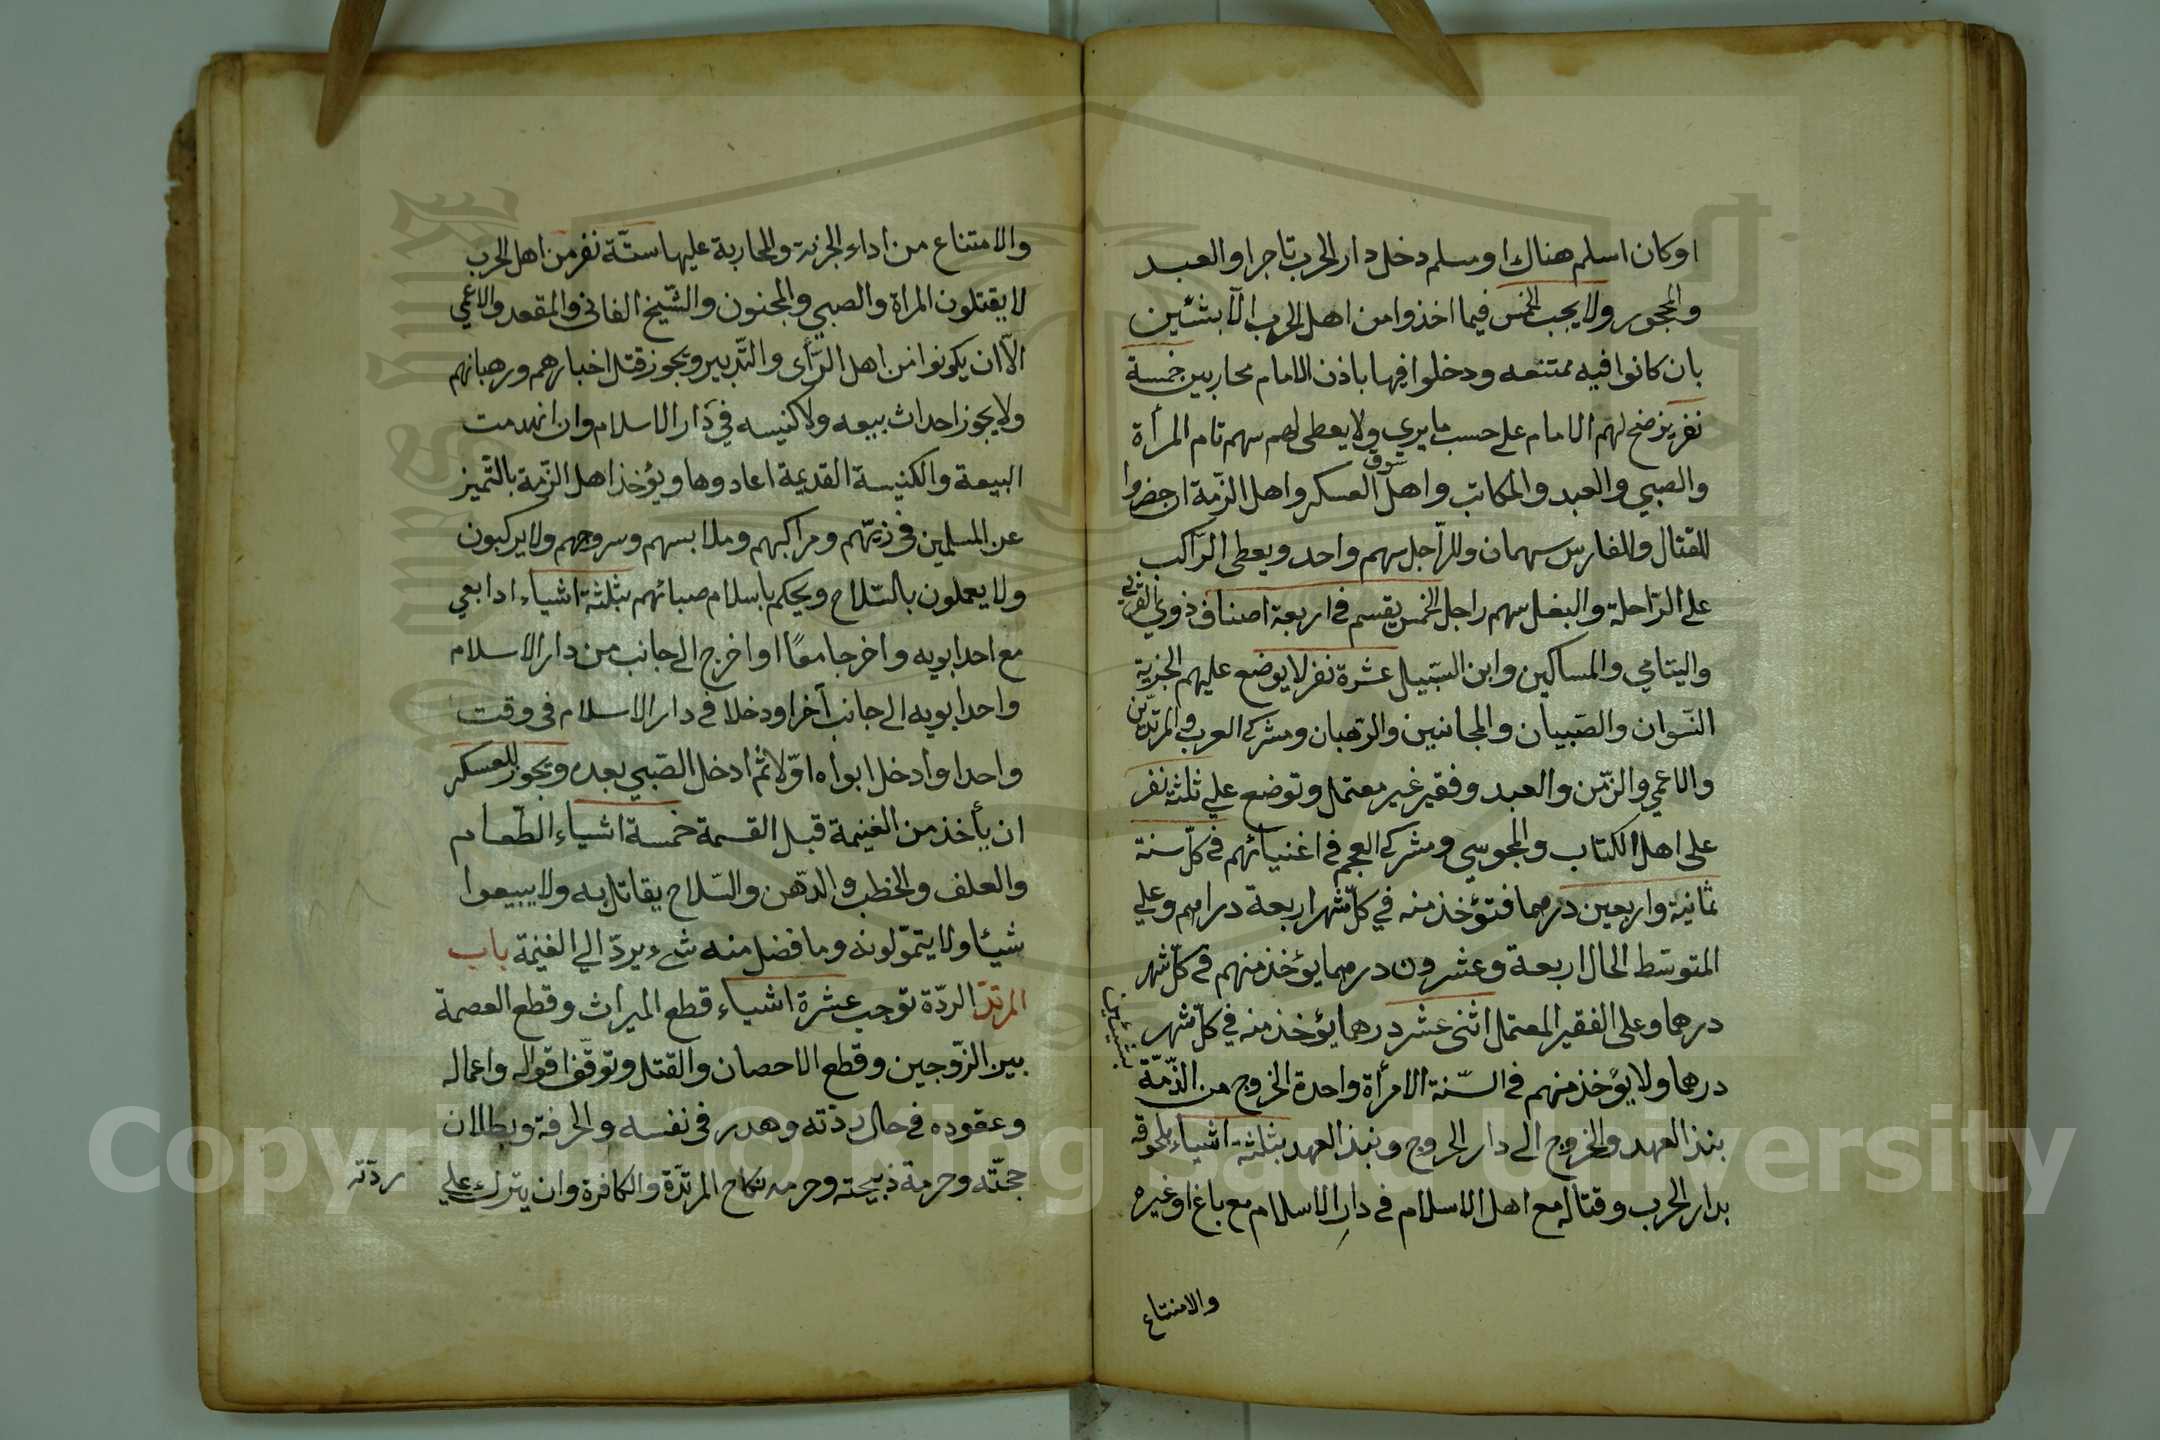 اوكان اسلم هناك اومسلم دخل دار الحرب تاجرا والعبد
والمحجور ولا يجب الخمس فيما اخذوا من اهل الحرب الا بشيئين
بان كانوا فيه ممتنعه ودخلوا فيها باذن الامام محاربين خمسة
نفر يرضخ لهم الامام على حسب ما يرى ولا يعطى لهم سهم تام المرأة
والصبي والعبد والمكاتب واهل سوق العسكر واهل الذمة ان حضروا
للقتال وللفارس سهمان وللراجل سهم واحد ويعطى الراكب
على الراحلة والبغل سهم راجل الخمس يقسم في اربعة اصناف ذوي القربى
واليتامي والمساكين وابن السبيل عشرة نفر لا يوضع عليهم الجزية
النسوان والصبيان والمجانين والرهبان ومشركي العرب والمرتدين
والاعمي والزمن والعبد وفقير غير معتمل وتوضع علي ثلثة نفر
على اهل الكتاب والمجوسي ومشركي العجم في اغنيائهم في كل سنة
ثمانية واربعين درهما فتؤخذ منه في كل شهر اربعة دراهم وعلي
المتوسط الحال اربعة وعشرون درهما يؤخذ منهم في كل شهر
درهما وعلى الفقير المعتمل اثنى عشر درهما يؤخذ منه في كل شهر
بشيئين
درهما ولا يؤخذ منهم في السنة الا مرأة واحدة الخروج من الذمة
بنبذ العهد والخروج الى دار الحروج ونبذ العهد بثلثة اشياء بلحوقه
بدار الحرب وقتاله مع اهل الاسلام في دار الاسلام مع باغ اوغيره
والامتناع
والامتناع من اداء الجزية والمحاربة عليها ستة نفر من اهل الحرب
لا يقتلون المراة والصبي والمجنون والشيخ الفانى والمقعد والاعمي
الا ان يكونوا من اهل الرأى والتدبير ويجوز قتل اخبارهم ورهبانهم
ولا يجوز احداث بيعه ولا كنيسه في دار الاسلام وان انهدمت
البيعة والكنيسة القديمة اعادوها ويؤخذ اهل الذمة بالتميز
عن المسلمين في زيهم ومراكبهم وملابسهم وسروجهم ولا يركبون
ولا يعملون بالسلاح ويحكم باسلام صبائهم بثلثة اشياء اذا بعي
مع احد ابويه واخرجا معا او اخرج الى جانب من دار الاسلام
واحد ابويه الى جانب آخر او دخلا في دار الاسلام في وقت
واحد او ادخل ابواه اولا ثم ادخل الصبي بعده ويجوز للعسكر
ان يأخذ من الغنيمة قبل القسمة خمسة اشياء الطعام
والعلف والحطب والدهن والسلاح يقاتل به ولا يبيعوا
شيئا ولا يتمولونه وما فضل منه شيء يرد الي الغنيمة باب
المرتد الردة توجب عشرة اشياء قطع الميراث وقطع العصمة
بين الزوجين وقطع الاحصان والقتل وتوقف اقواله واعماله
وعقوده في حال ردته وهدر في نفسه والحرفة وبطلان
حجته وحرمة ذبيحته وحرمه نكاح المرتدة والكافرة وان يترك علي
ردته
Copyright © King Saud University